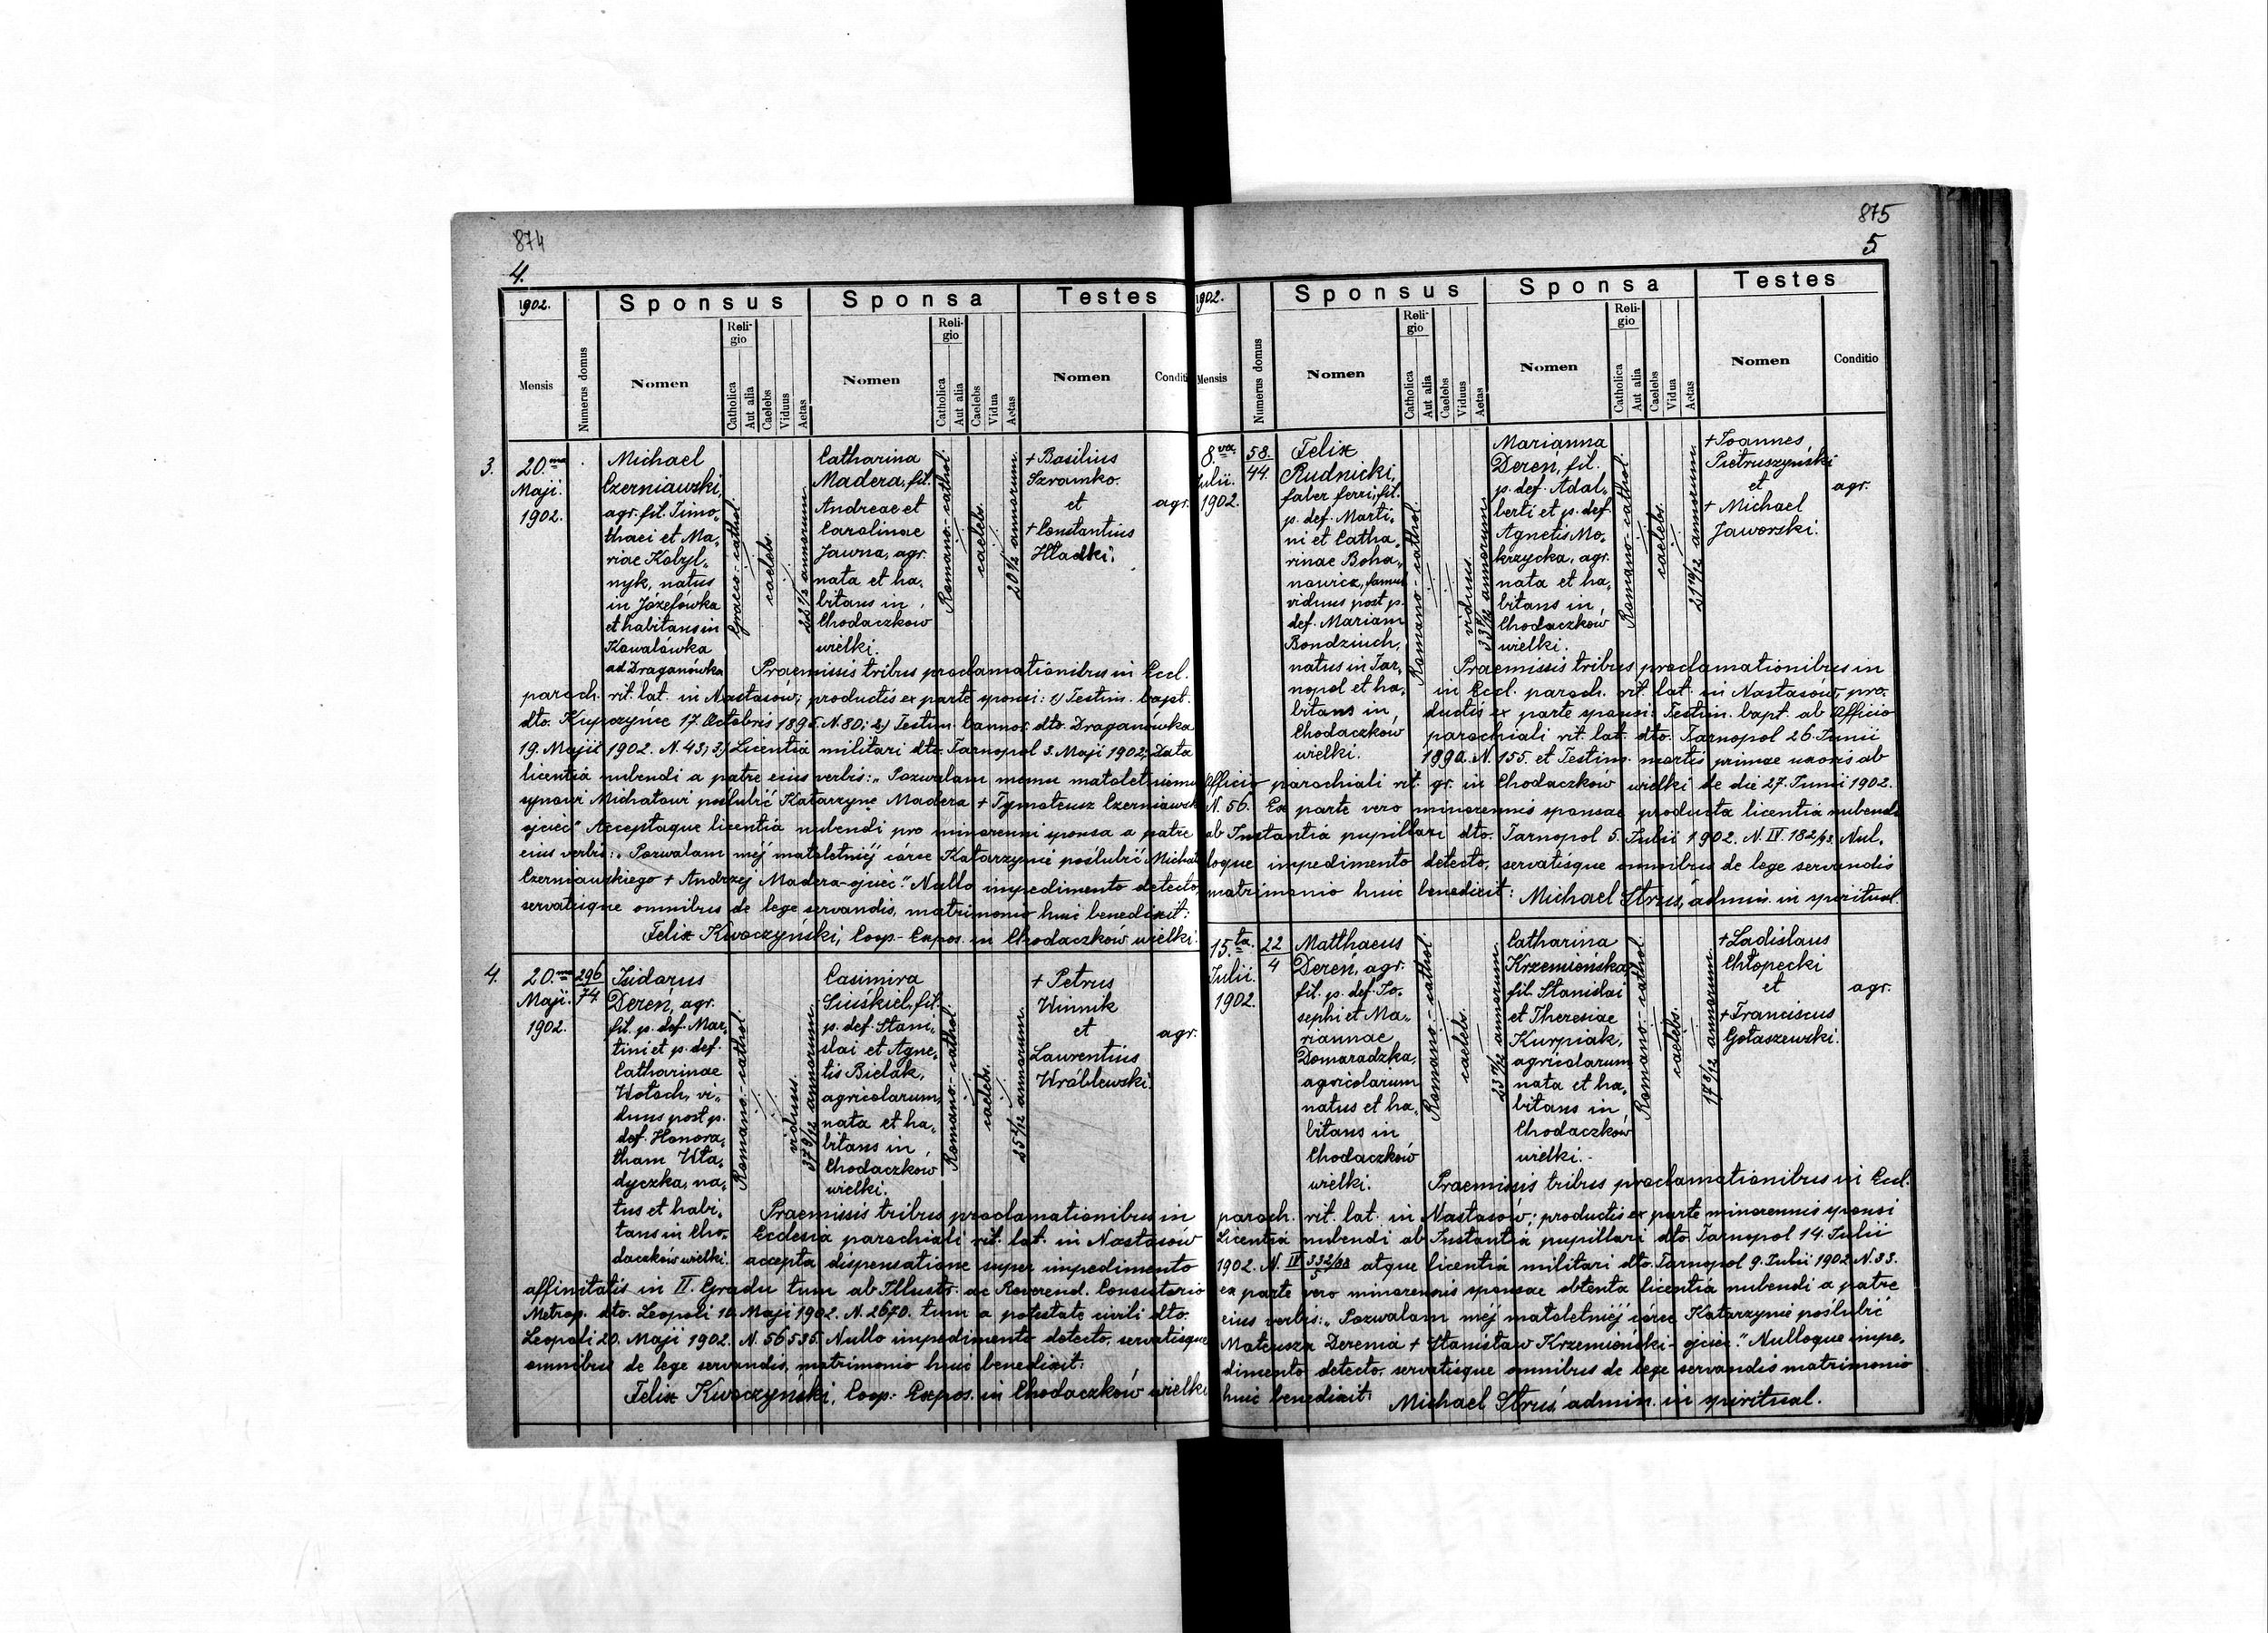 874
4.
1902.
Sponsus
Sponsa
Testes
Mensis
Numerus domus
Nomen
Religio
Catholica
Aut alia
Caelebs
Viduus
Aetas
Nomen
Religio
Catholica
Aut alia
Caelebs
Vidua
Aetas
Nomen
Conditi
3.
20.ma
Maji.
1902.
Michael
Czerniawski,
agr. fil. Timo„
thaei et Ma„
riae Kobyl„
nyk, natus
in Józefówka
et habitans in
Kowalówka
ad Draganówka
Graeco-cathol.
caelebs.
annorum
Catharina
Madera, fil.
Andreae et
Carolinae
Jawna, agr.
nata et ha„
bitans in
Chodaczków
wielki.
Romano-cathol.
caelebs.
annorum.
+ Basilius
Szramko.
et
+ Constantius
Hladki.
agr.
Praemissis tribus proclamationibus in Eccl.
paroch. rit. lat. in Nastasów; productis ex parte sponsi: 1) Testim. bapt.
dto. Kupczyńce 17. Octobris 1895. N. 80; 2) Testim. bannor. dto. Draganówka
19. Maji 1902. N. 43; 3) Licentiâ militari dto. Tarnopol 3. Maji 1902; Data
licentiâ nubendi a patre eius verbis: „Pozwalam memu małoletniemu
synowi Michałowi poślubić Katarzynę Madera + Tymoteusz Czerniawski
ojciec" Acceptaque licentiâ nubendi pro minorenni sponsa a patre
eius verbis: „Pozwalam mej małoletniéj córce Katarzynie poślubić Michał
Czerniawskiego + Andrzej Madera-ojciec." Nullo impedimento detecto,
servatisque omnibus de lege servandis, matrimonio huic benedixit:
Felix Kwoczyński, Coop.-Expos. in Chodaczków wielki.
4.
20.ma
Maji.
1902.
296
74.
Isidorus
Dereń, agr.
fil. p. def. Mar„
tini et p. def.
Catharinae
Wołoch, vi„
duus post p.
def. Honora„
tham Wła„
dyczka, na„
tus et habi„
tans in Cho„
daczków wielki.
Romano-cathol.
viduus.
37 9/12 annorum
Casimira
fil.
p. def. Stani„
slai et Agne„
tis Bielak,
agricolarum,
nata et ha„
bitans in
Chodaczków
wielki.
Romano-cathol.
caelebs.
annorum.
+ Petrus
Winnik
et
Laurentius
Wróblewski.
agr.
Praemissis tribus proclamationibus in
Ecclesia parochiali rit. lat. in Nastasów
accepta dispensatione super impedimento
affinitatis in II. Gradu tum ab Illustr. ac Reverend. Consistorio
Metrop. dto. Leopoli 10. Maji 1902. N. 2670. tum a potestate civili dto.
Leopoli 20. Maji 1902. N. 56535. Nullo impedimento detecto, servatisque
omnibus de lege servandis, matrimonio huic benedixit:
Felix Kwoczyński, Coop.- Expos. in Chodaczków wielki
875
5
1902.
Sponsus
Sponsa
Testes
Mensis
Numerus domus
Nomen
Religio
Catholica
Aut alia
Caelebs
Viduus
Aetas
Nomen
Religio
Catholica
Aut alia
Caelebs
Vidua
Aetas
Nomen
Conditio
8.va
Julii.
1902.
58.
44.
Felix
Rudnicki,
faber ferri, fil.
p. def. Marti„
ni et Catha„
rinae Boha„
nowicz,
viduus post p.
def. Mariam
Bondziuch,
natus in Tar„
nopol et ha„
bitans in
Chodaczków
wielki.
Romano-cathol.
viduus.
annorum
Marianna
Dereń, fil.
p. def. Adal„
berti et p. def.
Agnetis Mo„
krzycka, agr.
nata et ha„
bitans in
Chodaczków
wielki.
Romano-cathol.
caelebs.
annorum
+ Joannes
Pietruszyński
et
+ Michael
Jaworski.
agr.
Praemissis tribus proclamationibus in
in Eccl. paroch. rit. lat. in Nastasów, pro„
ductis ex parte sponsi: Testim. bapt. ab Officio
parochiali rit. lat. dto. Tarnopol 26. Junii
N. 155. et Testim. mortis primae uxoris ab
Officio parochiali rit. gr. in Chodaczków wielki de die 27. Junii 1902.
N. 56. Ex parte vero minorennis sponsae producta licentiâ nubendi
ab Instantia pupillari dto. Tarnopol 5. Julii 1902. N. IV 182/93. Nul„
loque impedimento detecto, servatisque omnibus de lege servandis
matrimonio huic benedixit: Michael Struś, admin. in spiritual.
15.ta
Julii.
1902.
22
4
Matthaeus
Dereń, agr.
fil. p. def. Jo„
sephi et Ma„
riannae
Domaradzka,
agricolarum
natus et ha„
bitans in
Chodaczków
wielki.
Romano-cathol.
caelebs.
annorum
Catharina
Krzemieńska,
fil. Stanislai
et Theresiae
Kurpiak,
agricolarum
nata et ha„
bitans in
Chodaczków
wielki.
Romano-cathol.
caelebs.
annorum
+ Ladislaus
Chłopecki
et
+ Franciscus
Gołaszewski.
agr.
Praemissis tribus proclamationibus in Eccl.
paroch. rit. lat. in Nastasów; productis ex parte minorennis sponsi
Licentiâ nubendi ab Instantia pupillari dto Tarnopol 14. Julii
1902. N. IV atque licentiâ militari dto. Tarnopol 9. Julii 1902. N. 33.
ex parte vero minorennis sponsae obtenta licentiâ nubendi a patre
eius verbis: „Pozwalam méj małoletniéj córce Katarzynie poślubić
Mateusza Derenia + Stanisław Krzemieński-ojciec." Nulloque impe„
dimento detecto, servatisque omnibus de lege servandis matrimonio
huic benedixit: Michael Struś admin. in spiritual.